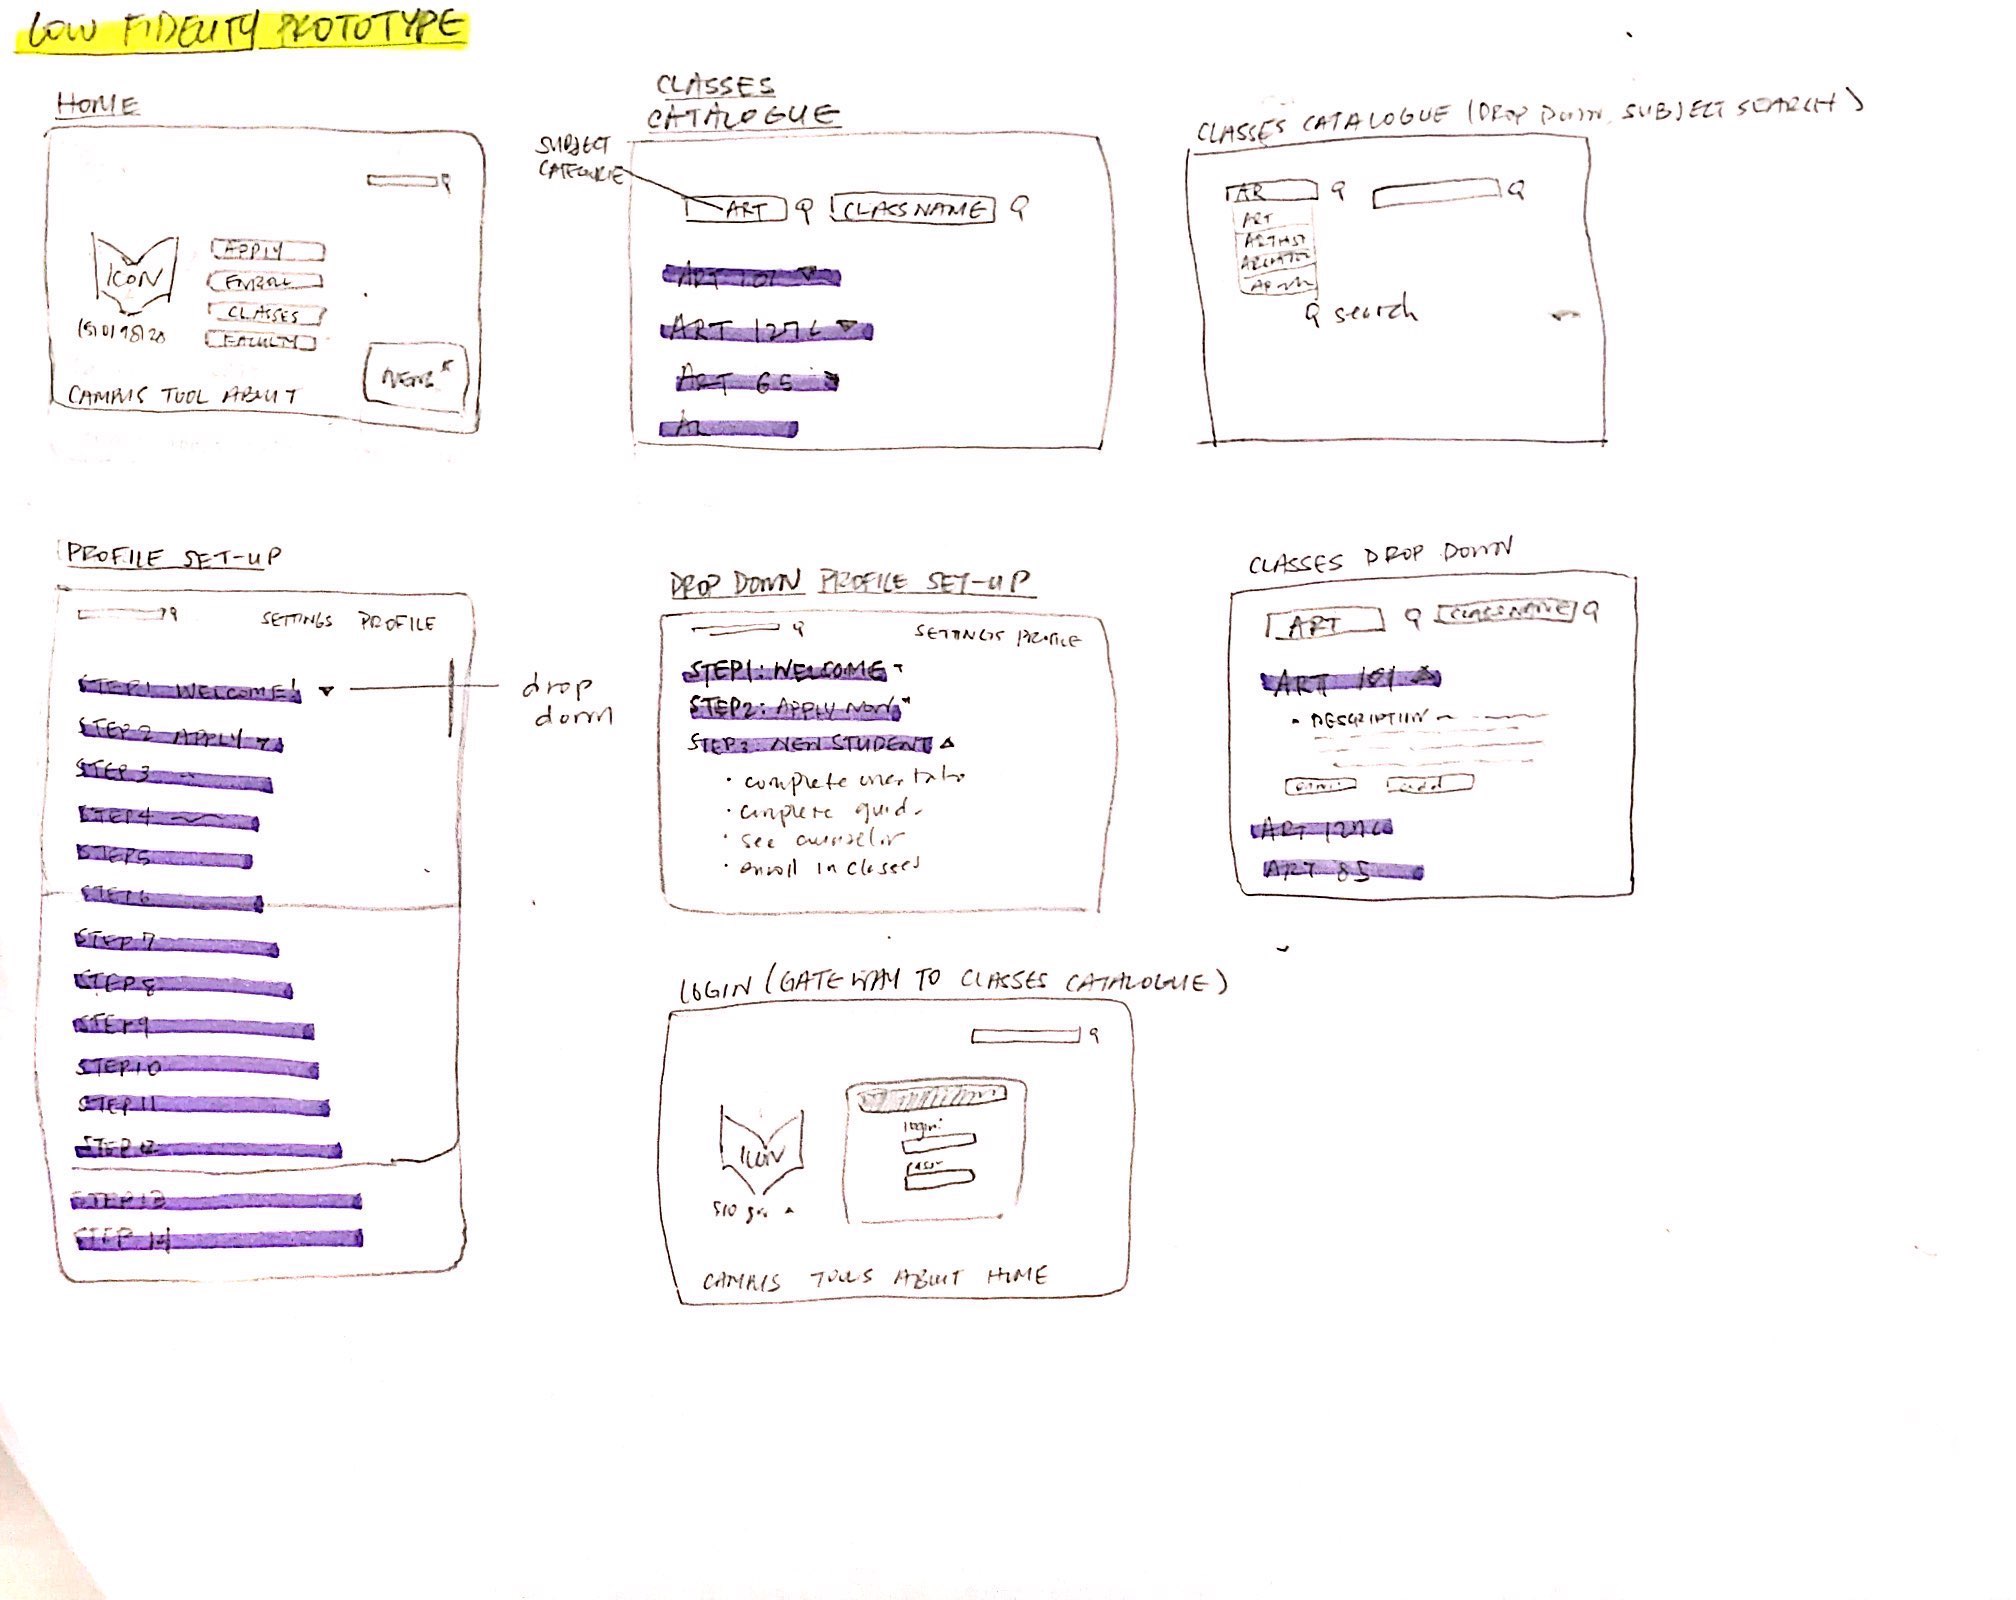 LOW FIDELITY PROTOTYPE
HOME
ICON
APPLY
ENROLL
CLASSES
FACULTY
NEWS
CAMPUS TOOL ABOUT
CLASSES
CATALOGUE
SUBJECT
CATEGORIE
ART CLASS NAME
ART 101
ART 127C
ART 65
CLASSES CATALOGUE (DROP DOWN, SUBJECT SEARCH)
AR
ART
ARTHIST
search
PROFILE SET-UP
SETTINGS PROFILE
STEP 1 WELCOME!
drop
down
STEP 2 APPLY
STEP 3
STEP 4
STEP 5
STEP 6
STEP 7
STEP 8
STEP 9
STEP 10
STEP 11
STEP 12
STEP 13
STEP 14
DROP DOWN PROFILE SET-UP
SETTINGS PROFILE
STEP1: WELCOME
STEP2: APPLY NOW
STEP3: NEW STUDENT
• complete
• complete
• see counselor
• enroll in classes
CLASSES DROP DOWN
ART CLASS NAME
ART 101
• DESCRIPTION
add
ART 127C
ART 85
LOGIN (GATEWAY TO CLASSES CATALOGUE)
ICON
510
login:
CAMPUS TOOLS ABOUT HOME